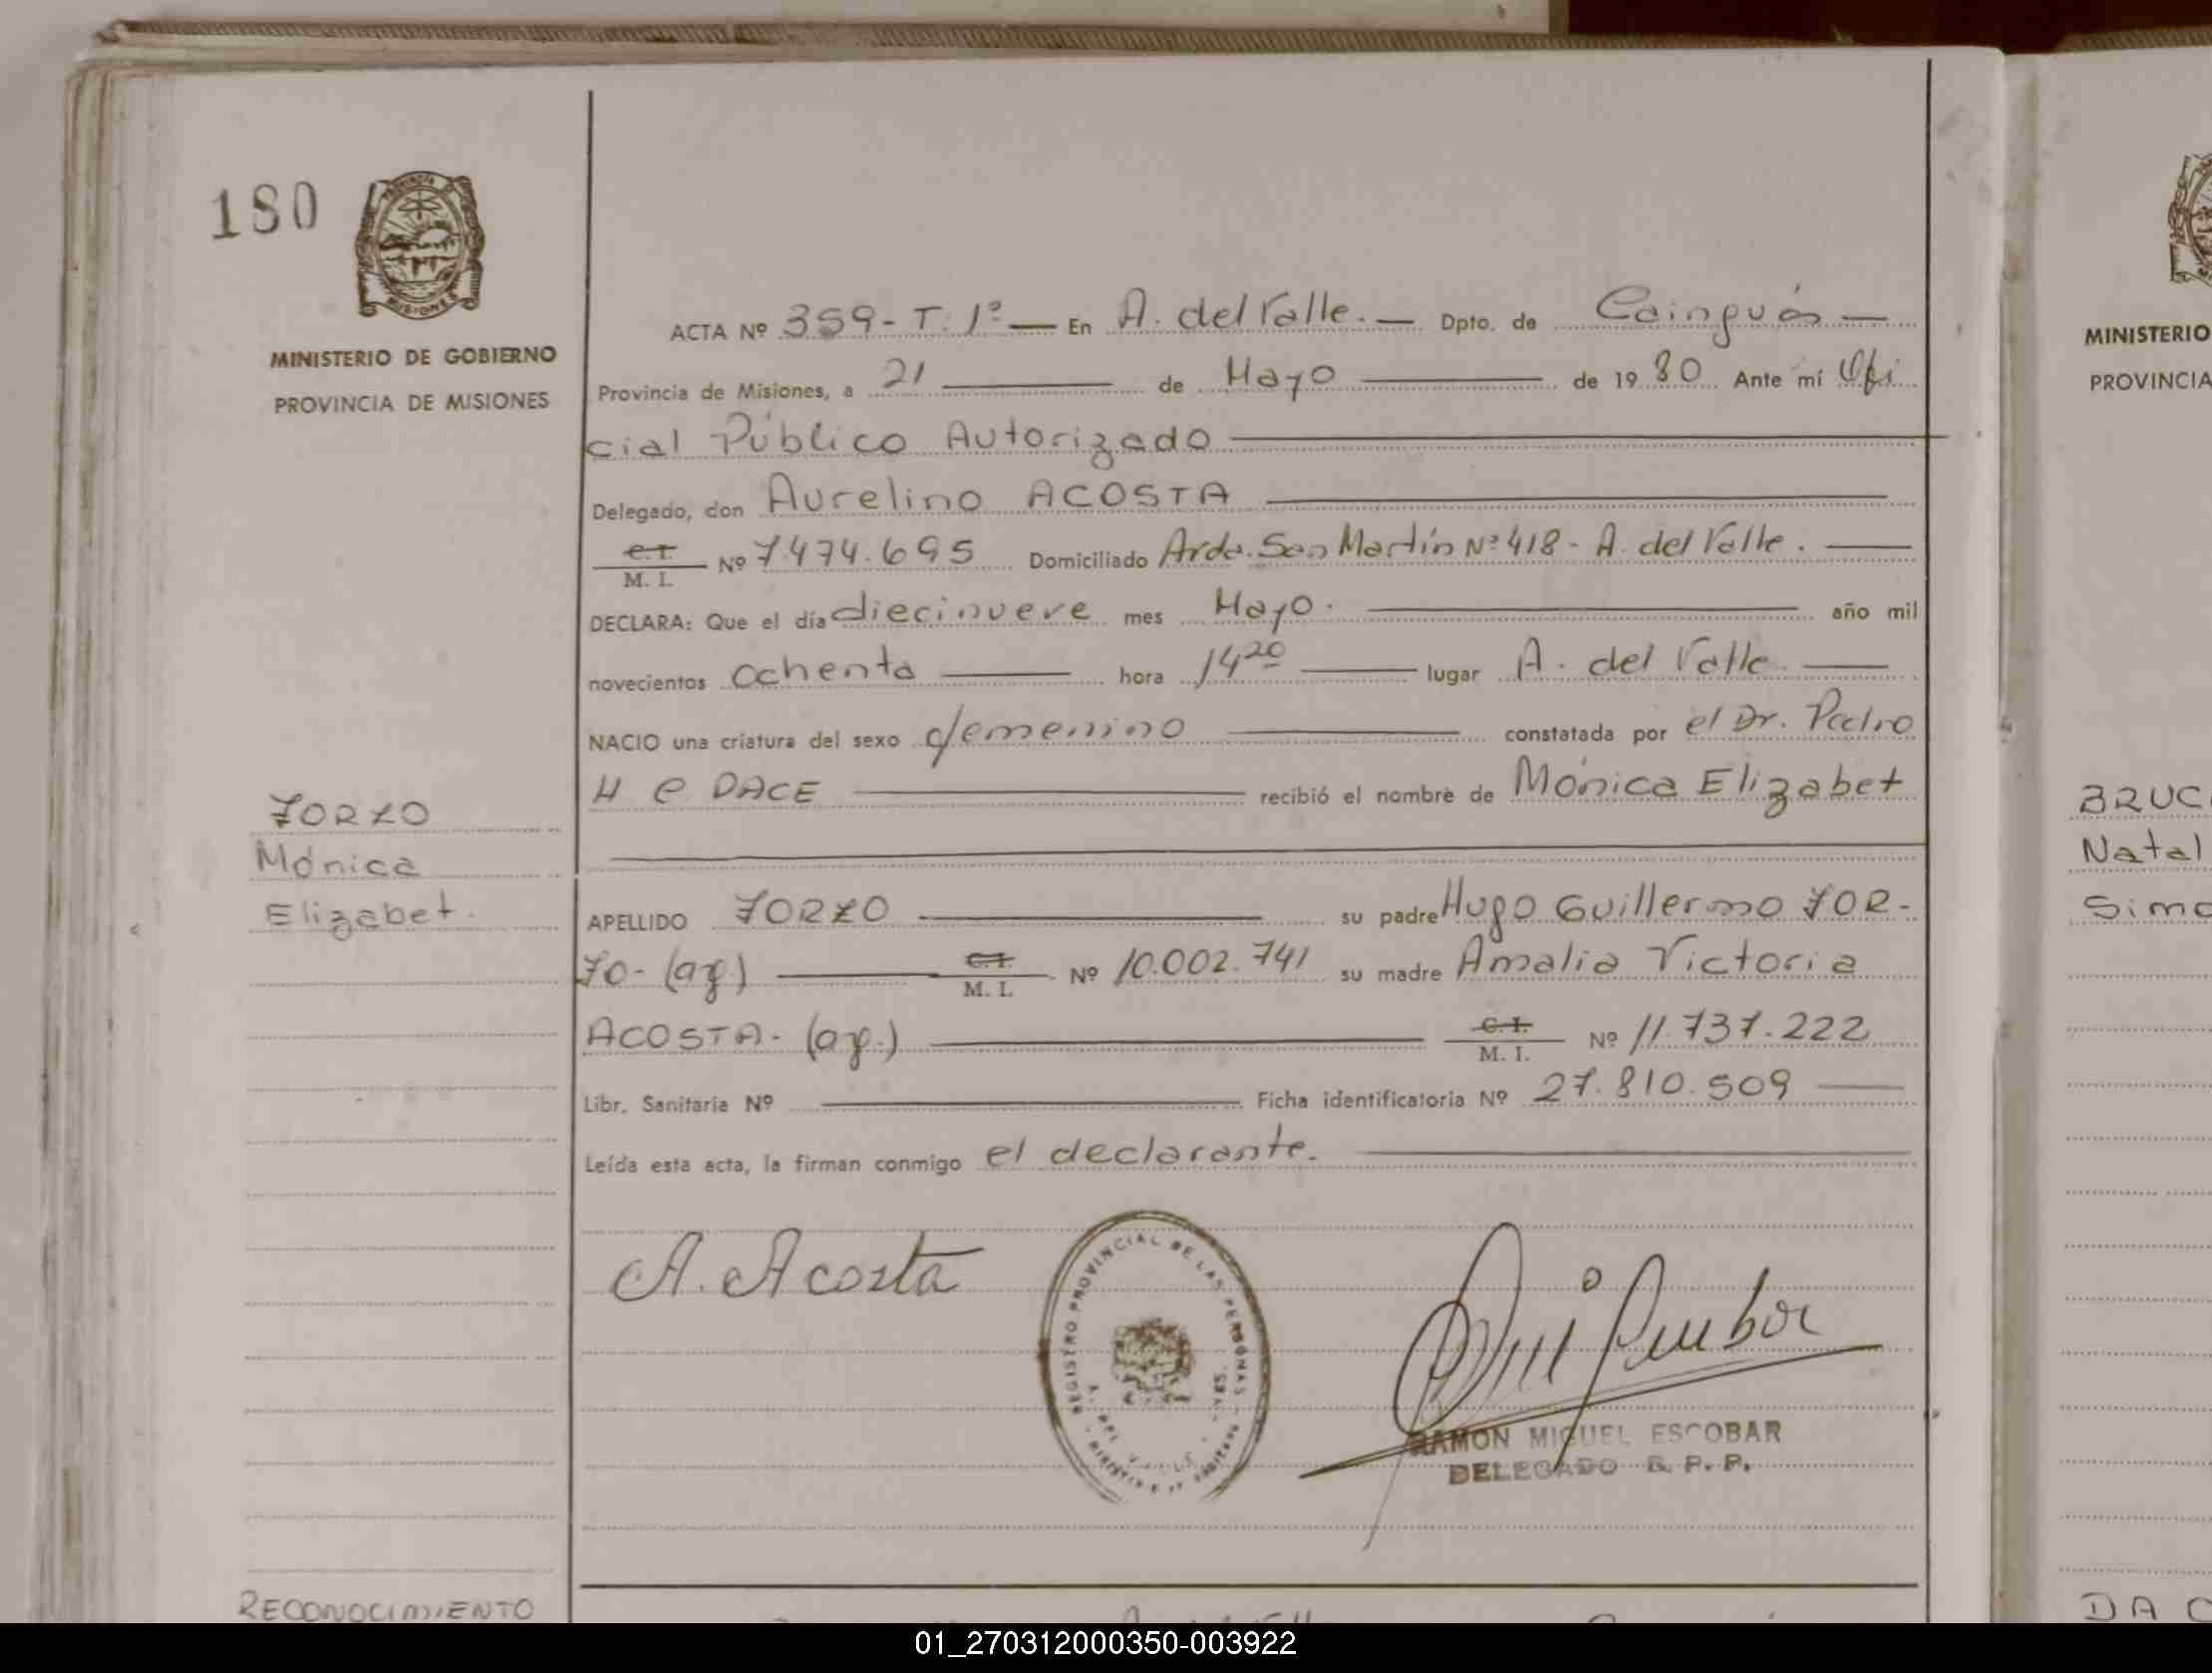 180
MINISTERIO DE GOBIERNO
PROVINCIA DE MISIONES
ACTA Nº 359 - T. 1º — En A. del Valle. — Dpto. de Cainguás —
Provincia de Misiones, a 21 — de Mayo — de 19 80 Ante mí Ofi
cial Público Autorizado
Delegado, don Aurelino ACOSTA
C.I. M. I. Nº 7.474.695 Domiciliado Avda. San Martín Nº 418 - A. del Valle.
DECLARA: Que el día diecinueve mes Mayo. año mil
novecientos ochenta hora 14 20 lugar A. del Valle.
NACIO una criatura del sexo femenino constatada por el Dr. Pedro
H C DACE recibió el nombre de Mónica Elizabet
ZORZO
Mónica
Elizabet.
APELLIDO ZORZO su padre Hugo Guillermo ZOR-
ZO- (arg) C.I. M. I. Nº 10.002.741 su madre Amalia Victoria
ACOSTA- (arg.) C.I. M. I. Nº 11.737.222
Libr. Sanitaria Nº Ficha identificatoria Nº 27.810.509
Leída esta acta, la firman conmigo el declarante.
A. Acosta
REGISTRO PROVINCIAL DE LAS PERSONAS
RAMON MIGUEL ESCOBAR
DELEGADO R. P. P.
RECONOCIMIENTO
MINISTERIO
PROVINCIA
BRUC
Natal
Simo
DA C
01_270312000350-003922